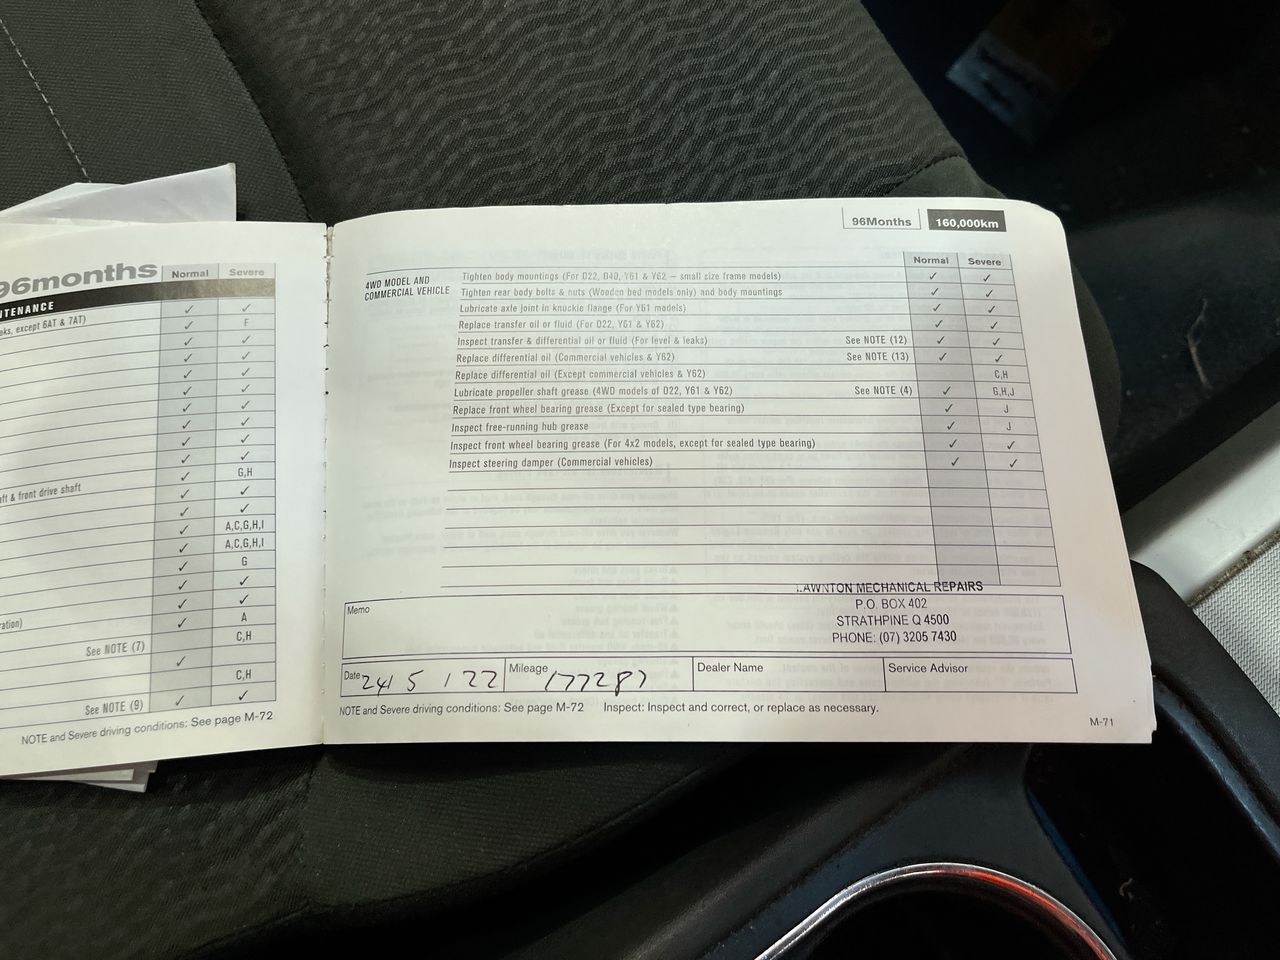 96months
Normal Severe
NTENANCE
✓ ✓
aks, except 6AT & 7AT) ✓ F
✓ ✓
✓ ✓
✓ ✓
✓ ✓
✓ ✓
✓ ✓
✓ ✓
✓ G,H
aft & front drive shaft ✓ ✓
✓ ✓
✓ A,C,G,H,I
✓ A,C,G,H,I
✓ G
✓ ✓
✓ ✓
ration) ✓ A
See NOTE (7) C,H
✓
C,H
See NOTE (9) ✓ ✓
NOTE and Severe driving conditions: See page M-72
96Months 160,000km
Normal Severe
4WD MODEL AND
COMMERCIAL VEHICLE
Tighten body mountings (For D22, D40, Y61 & Y62 – small size frame models) ✓ ✓
Tighten rear body bolts & nuts (Wooden bed models only) and body mountings ✓ ✓
Lubricate axle joint in knuckle flange (For Y61 models) ✓ ✓
Replace transfer oil or fluid (For D22, Y61 & Y62) ✓ ✓
Inspect transfer & differential oil or fluid (For level & leaks) See NOTE (12) ✓ ✓
Replace differential oil (Commercial vehicles & Y62) See NOTE (13) ✓ ✓
Replace differential oil (Except commercial vehicles & Y62) C,H
Lubricate propeller shaft grease (4WD models of D22, Y61 & Y62) See NOTE (4) ✓ G,H,J
Replace front wheel bearing grease (Except for sealed type bearing) ✓ J
Inspect free-running hub grease ✓ J
Inspect front wheel bearing grease (For 4x2 models, except for sealed type bearing) ✓ ✓
Inspect steering damper (Commercial vehicles) ✓ ✓
LAWNTON MECHANICAL REPAIRS
P.O. BOX 402
STRATHPINE Q 4500
PHONE: (07) 3205 7430
Memo
Date 24/ 5 / 22 Mileage 177287 Dealer Name Service Advisor
NOTE and Severe driving conditions: See page M-72 Inspect: Inspect and correct, or replace as necessary.
M-71